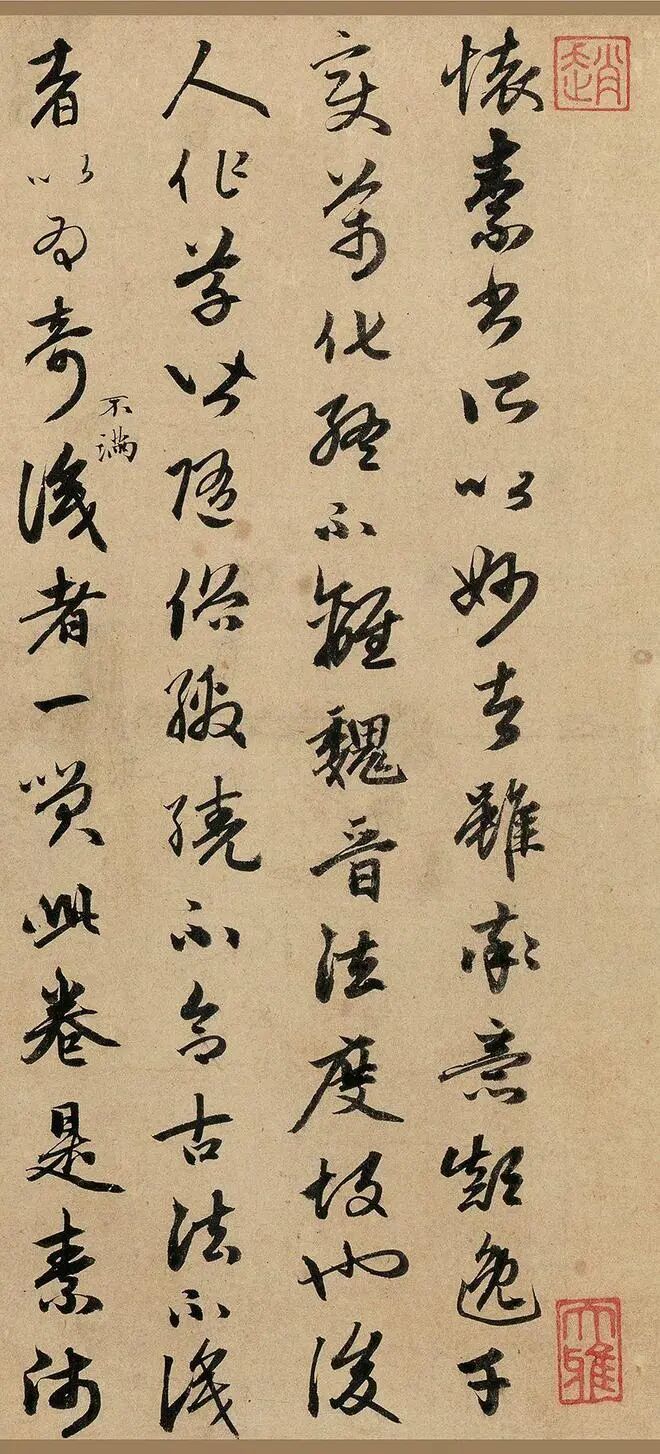 趙
大雅
懷素書所以妙者雖率意顛逸千
變萬化終不離魏晉法度故也後
人作草皆隨俗繳繞不合古法不識
者以為奇不滿識者一笑此卷是素師